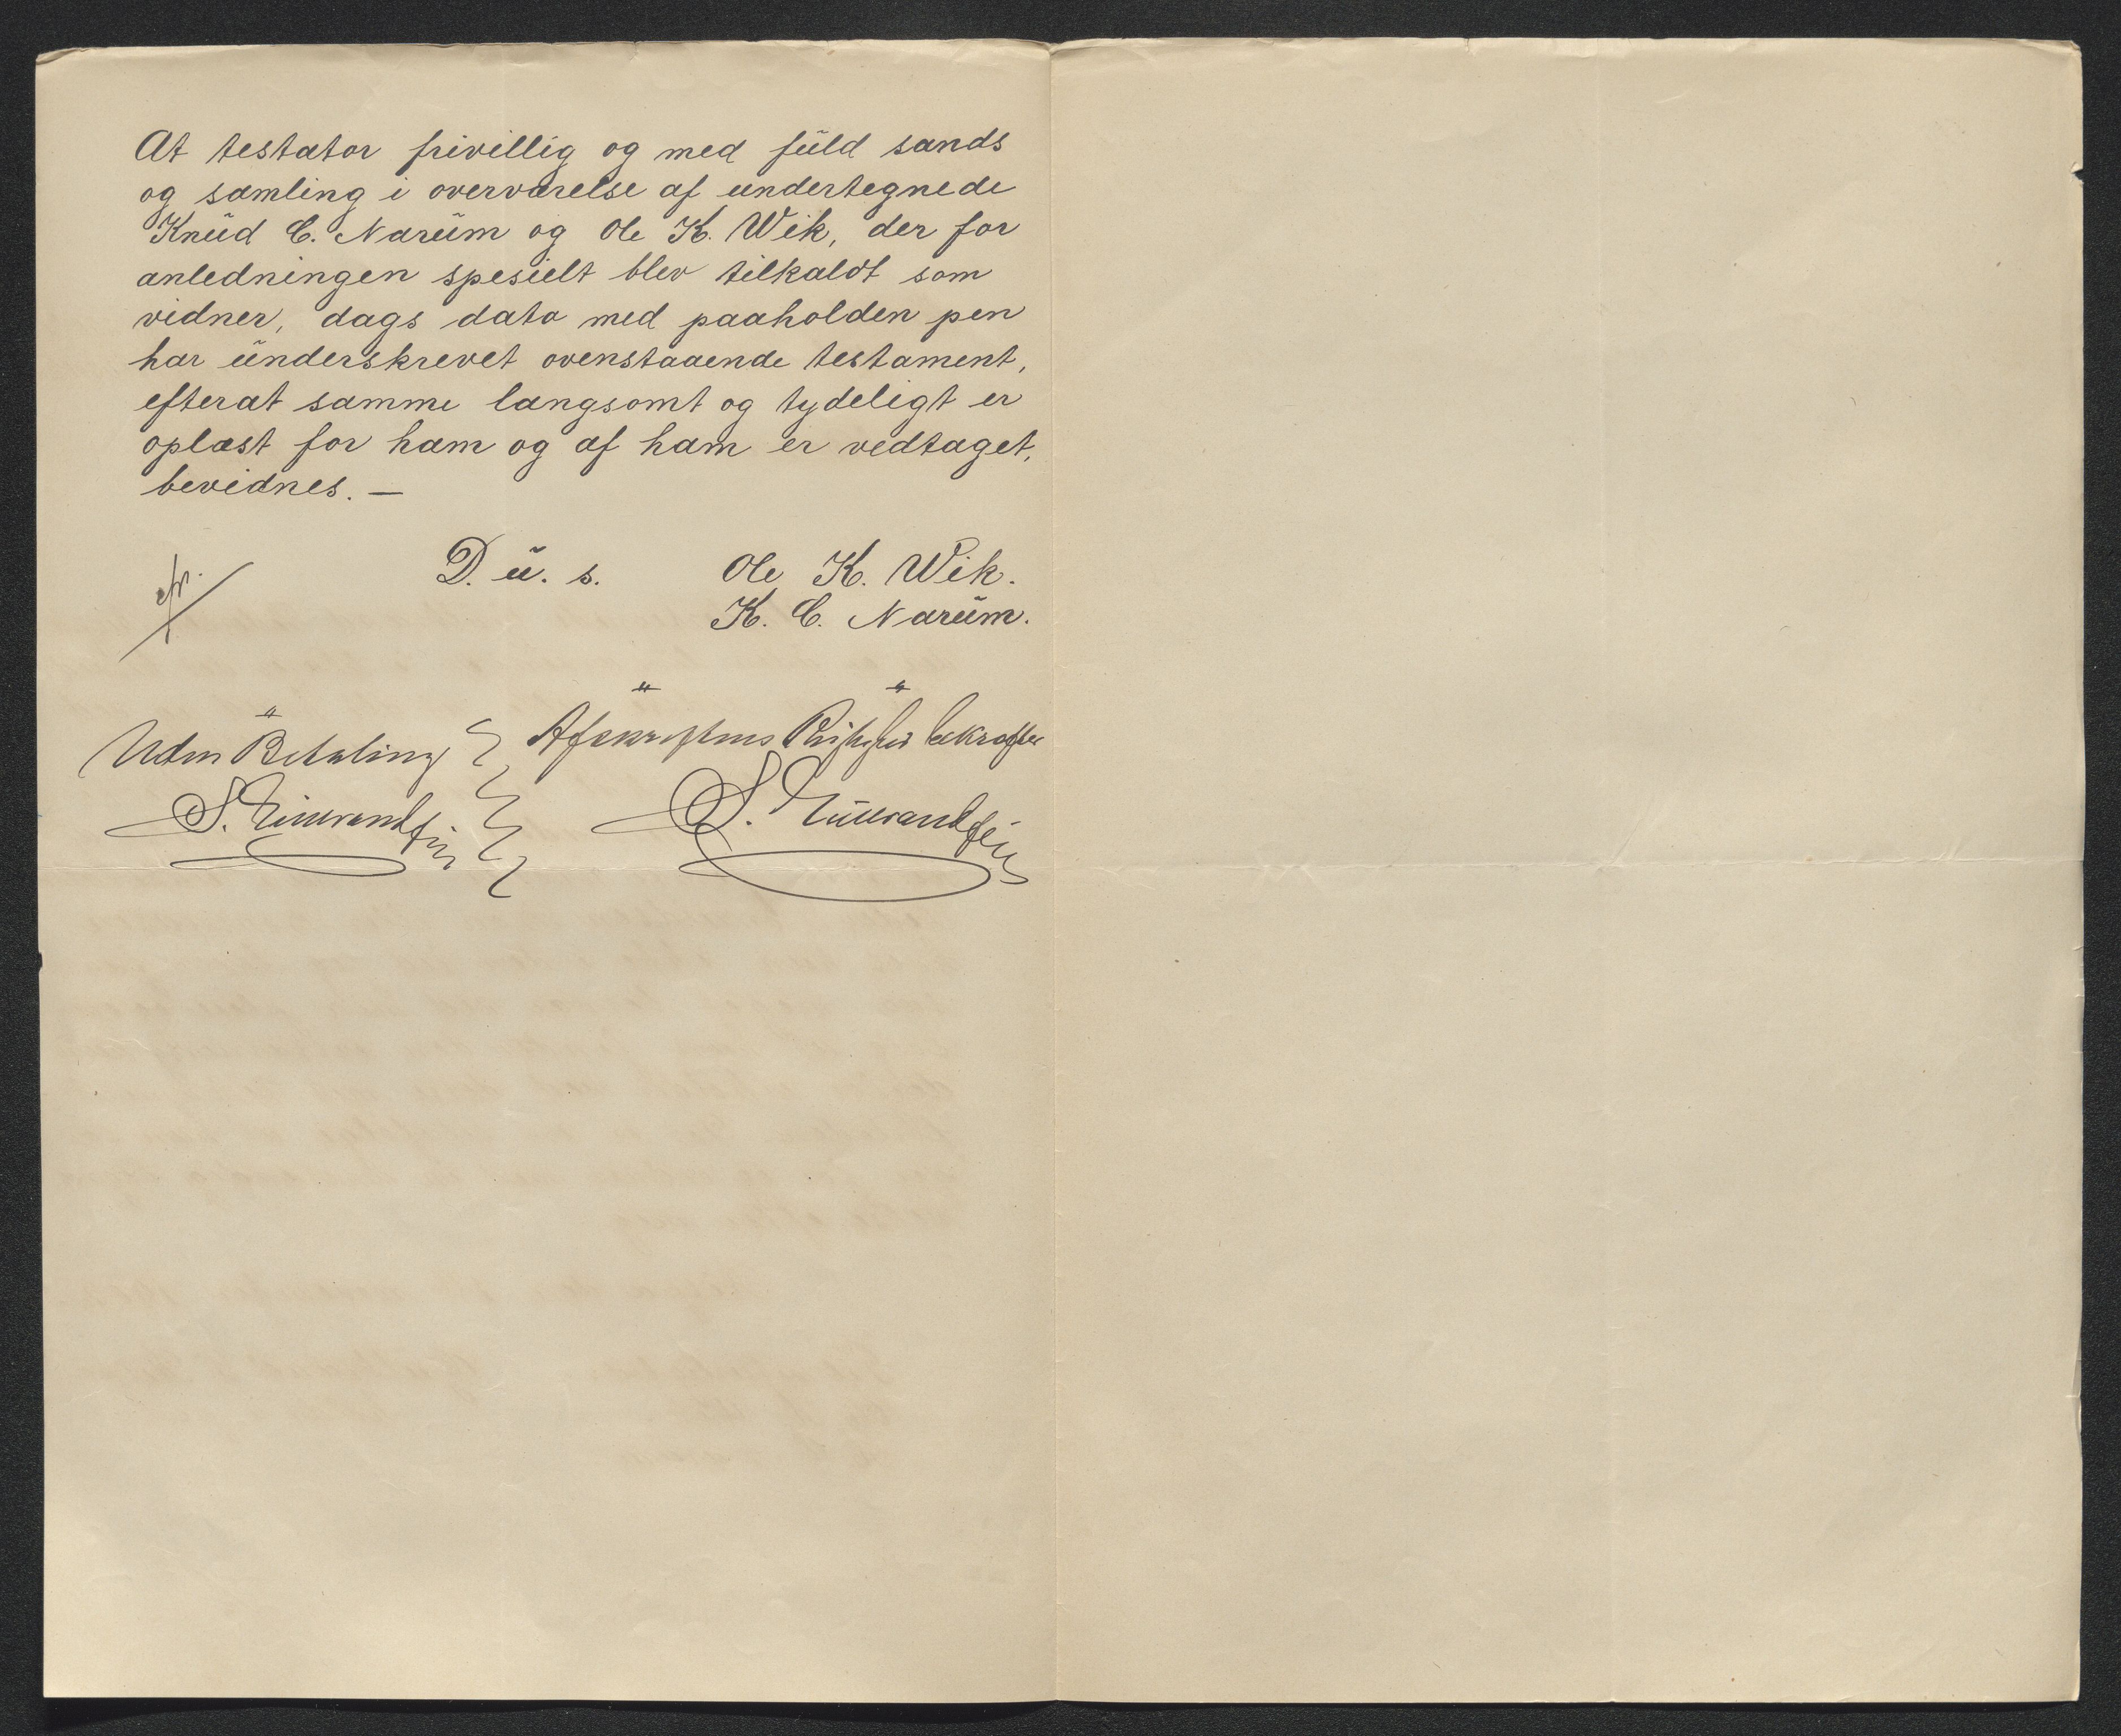 At testator frivillig og med fuld sands
og samling i overværelse af undertegnede
Knud C. Narum og Ole K. Wik, der for
anledningen spesielt blev tilkaldt som
vidner, dags dato med paaholden pen
har underskrevet ovenstaaende testament,
efterat samme langsomt og tydeligt er
oplæst for ham og af ham er vedtaget,
bevidnes. —
D. u. s. Ole K. Wik.
K. C. Narum.
Uden Betaling
Afskriftens Rigtighed bekræftes